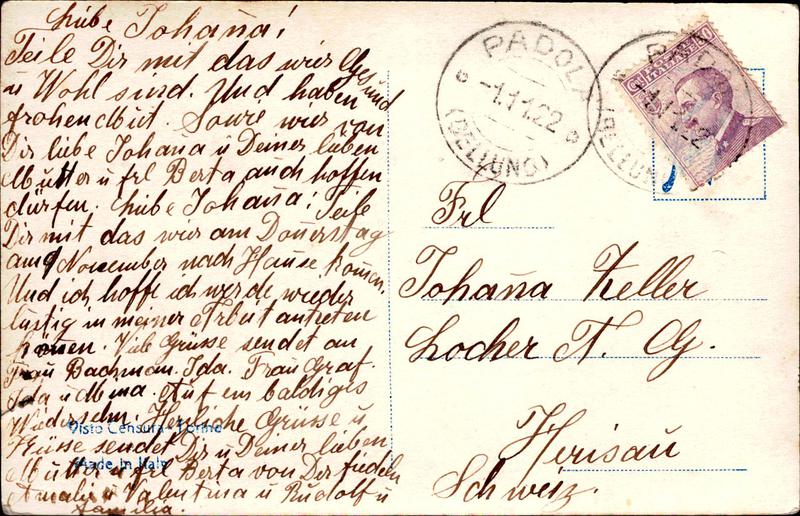 Liebe Johaña!
Teile Dir mit das wier Gesund
u Wohl sind. Und haben
frohen Mut. Sowie wier von
Dir liebe Johana u Deiner lieben
Mutter u frl Berta auch hoffen
dürfen. Liebe Johaña! Teile
Dir mit das wier am Doñerstag
am 9 November nach Hause komen.
Und ich hoffe ich werde wieder
lustig in meiner Arbeit antreten
könen. Viele Grüsse sendet an
Frau Bachman. Ida. Frau Graf.
Ida u Alma. Auf ein baldiges
Wiedersehn. Herzliche Grüsse u
Küsse sendet Dir u Deiner lieben
Mutter u frl Berta von Der
Amalie u Valentina u Rudolf u
Familia.
Visto Censura - Torino
Made in Italy
PADOLA
-1.11.22
(BELLUNO)
PADOLA
-1.11.22
(BELLUNO)
Frl
Johaña Keller
Locher A. G.
Herisau
Schweiz.